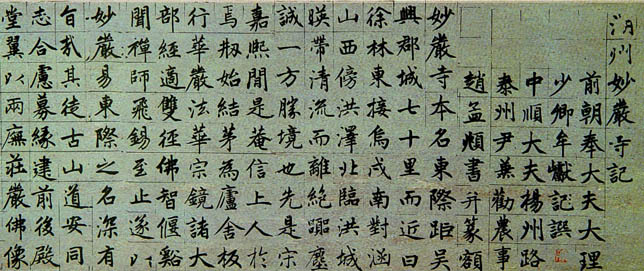 湖州妙嚴寺記
前朝奉大夫大理
少卿牟巘記撰
中順大夫楊州路
泰州尹兼勸農事
趙孟頫書并篆額
妙嚴寺本名東際距吳
興郡城七十里而近曰
徐林東接烏戍南對涵
山西傍洪澤北臨洪城
暎帶清流而離絕塵
誠一方勝境也先是宋
嘉熙間是菴信上人於
焉刱始結茅為廬舍板
行華嚴法華宗鏡諸大
部經適雙徑佛智偃谿
聞禪師飛錫至止遂以
妙嚴易東際之名深有
旨哉其徒古山道安同
志合慮募緣建前後殿
堂翼以兩廡莊嚴佛像